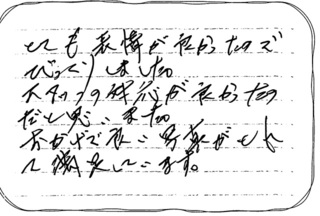 とても表情が良かったので
びっくりしました。
スタッフの対応が良かったの
だと思いました。
おかげで良い写真がとれ
て満足しています。